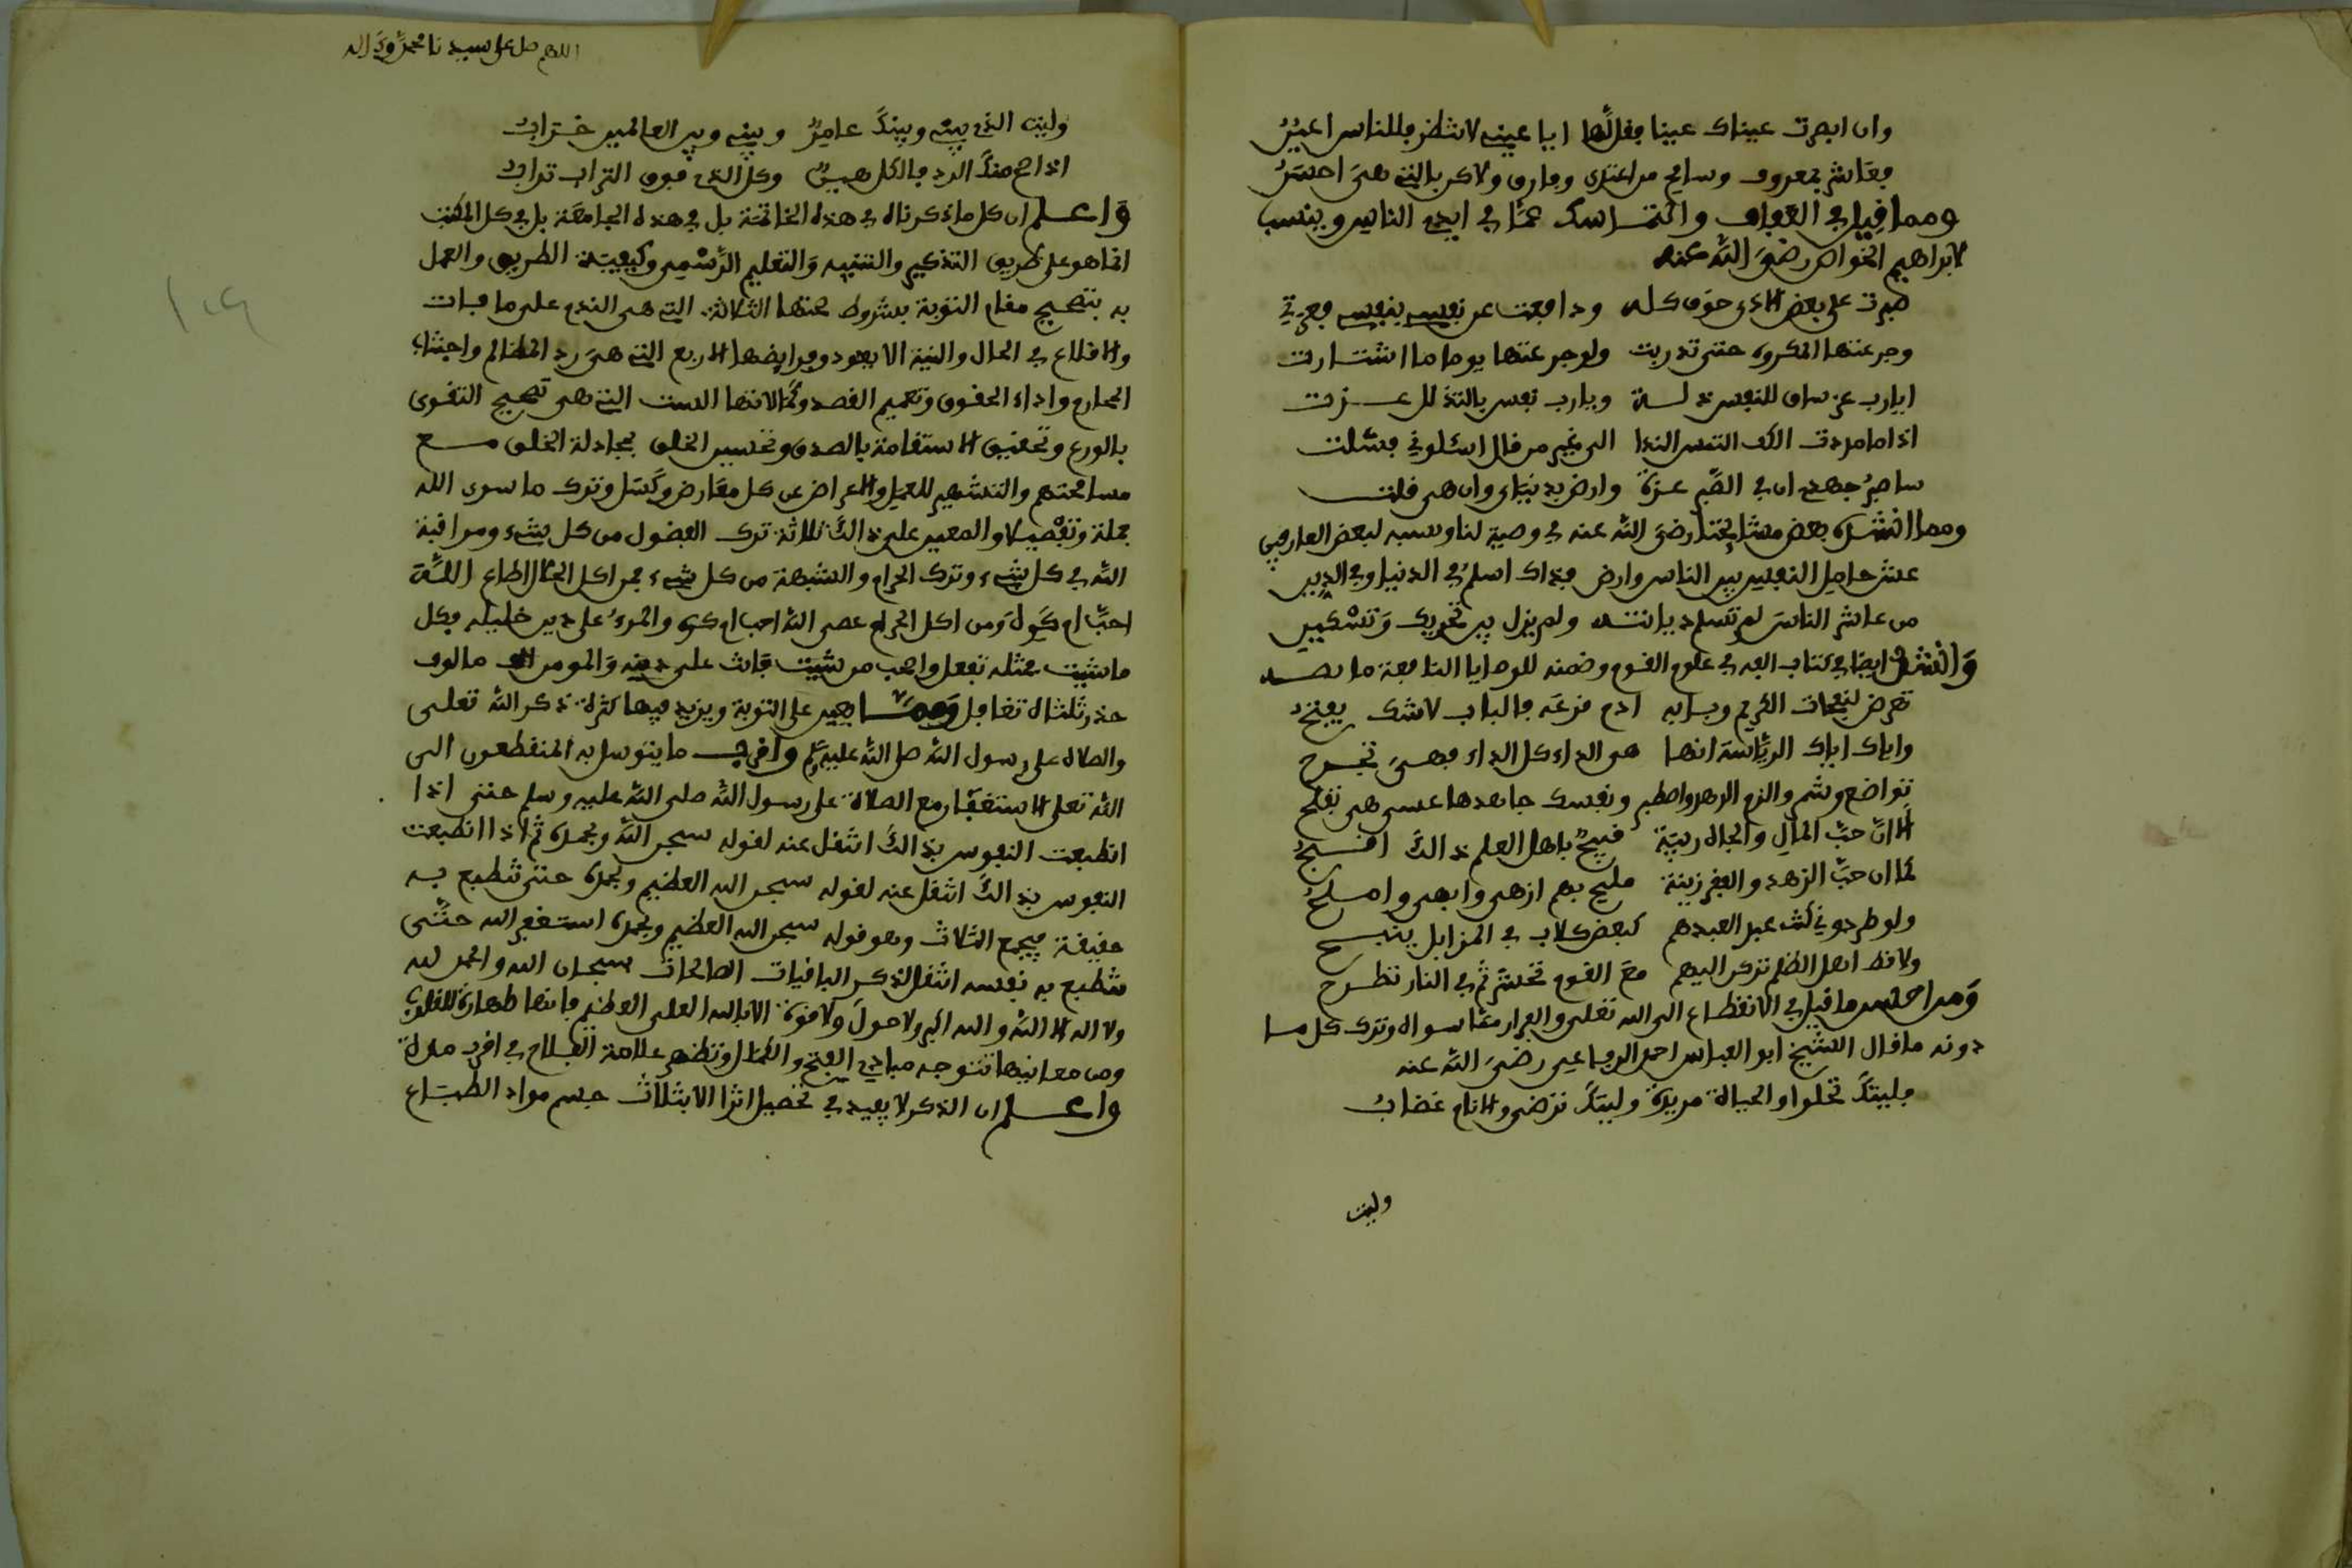 وان ابصرت عيناك عينا فقل لها ايا عيني لا تنظر فللناس اعين
فعاشر بمعروف وسامح من اعتدى وفارق ولاكن بالتي هي احسن
ومما قيل في العفاف والتماسك عما في ايدي الناس وينسب
لابراهيم الخواص رضي الله عنه
صبرت على بعض الاذى خوف كله ودافعت عن نفسي بنفسي فعزت
وجرعتها المكروه حتى تدربت ولو جرعتها يوما ما اشتارت
ايا رب عز ساق للنفس ذلة ويا رب نفس بالتذلل عزت
اذا ما مددت الكف التمس الندا الى غير من قال اسئلوني فشلت
ساصبر جهدي ان في الصبر عزة وارضى بدنياي وان هي قلت
ومما انشده بعض مشايخنا رضي الله عنه في وصية لنا ونسبه لبعض العارفين
عش خامل النفس بين الناس وارض فذاك اسلم في الدنيا وفي الدين
من عاشر الناس لم تسلم ديانته ولم يزل بين تحريك وتسكين
وانشد ايضا في كتاب الفه في علوم القوم وضمنه للوصايا النافعة ما نصه
تعرض لنفحات الكريم وبابه ادم قرعه فالباب لا شك يفتح
واياك اياك الرياسة انها هي الداء كل الداء فهي تجرح
تواضع وشمر والزم الزهد واصطبر ونفسك جاهدها عسى هي تفلح
الا ان حب المال والجاه ريبة قبيح باهل العلم ذالك اقبح
كما ان حب الزهد والفقر زينة مليح بهم ازهى وابهى واملح
ولو طردوني كنت عبد العبدهم كبعض كلاب في المزابل ينبح
ولا تك اهل الظلم تركن اليهم مع القوم تحشر ثم في النار تطرح
ومن احسن ما قيل في الانقطاع الى الله تعلى والفرار مما سواه وترك كل ما
دونه ما قال الشيخ ابو العباس احمد الرفاعي رضي الله عنه
فليتك تحلوا والحياة مريرة وليتك ترضى والانام غضاب
وليت
اللهم صل على سيدنا محمد وءاله
وليت الذي بيني وبينك عامر وبيني وبين العالمين خراب
اذا صح منك الود فالكل هين وكل الذي فوق التراب تراب
واعلم ان كل ما ذكرناه في هذه الخاتمة بل في هذه الجامعة بل في كل الكتب
انما هو على طريق التذكير والتنبيه والتعليم الرسمي وكيفية الطريق والعمل
به بتصحيح مقام التوبة بشروط صحتها الثلاثة التي هي الندم على ما فات
والاقلاع في الحال والنية الا يعود وفرايضها الاربع التي هي رد المظالم واجتناب
المحارم واداء الحقوق وتصميم القصد وكمالاتها الست التي هي تصحيح التقوى
بالورع وتحقيق الاستقامة بالصدق وتحسين الخلق بمجادلة الخلق مع
مسامحتهم والتشمير للعمل والاعراض عن كل معارض وكسل وترك ما سوى الله
جملة وتفصيلا والمعين على ذالك ثلاثة ترك الفضول من كل شيء ومراقبة
الله في كل شيء وترك الحرام والشبهة من كل شيء فمن اكل الحلال اطاع الله
احب ام كره ومن اكل الحرام عصى الله احب ام كره والمرء على دين خليله فكل
ما شيت فمثله تفعل واصحب من شيت فانت على دينه والمومن الف مالوف
ومما يعين على التوبة ويزيد فيها كثرة ذكر الله تعلى
والصلاه على رسول الله صلى الله عليه وسلم واقرب ما يتوسل به المنقطعون الى
الله تعلى الاستغفار مع الصلاة على رسول الله صلى الله عليه وسلم حتى اذا
انطبعت النفوس بذالك انتقل عنه لقوله سبحن الله وبحمده ثم اذا انطبعت
النفوس بذالك انتقل عنه لقوله سبحن الله العظيم وبحمده حتى تطبع به
حقيقة فيجمع الثلاث وهو قوله سبحن الله العظيم وبحمده استغفر الله حتى
تطبع به نفسه انتقل لذكر الباقيات الصالحات سبحان الله والحمد لله
ولا اله الا الله والله اكبر ولا حول ولا قوة الا بالله العلي العظيم فانها طهارة للقلوب
ومن معانيها تتوجه مبادي الفتح والكمال وتظهر علامة الفلاح في اقرب مدة
واعلم ان الذكر لا يفيد في تحصيل اثر الا بثلاث حسم مواد الطباع